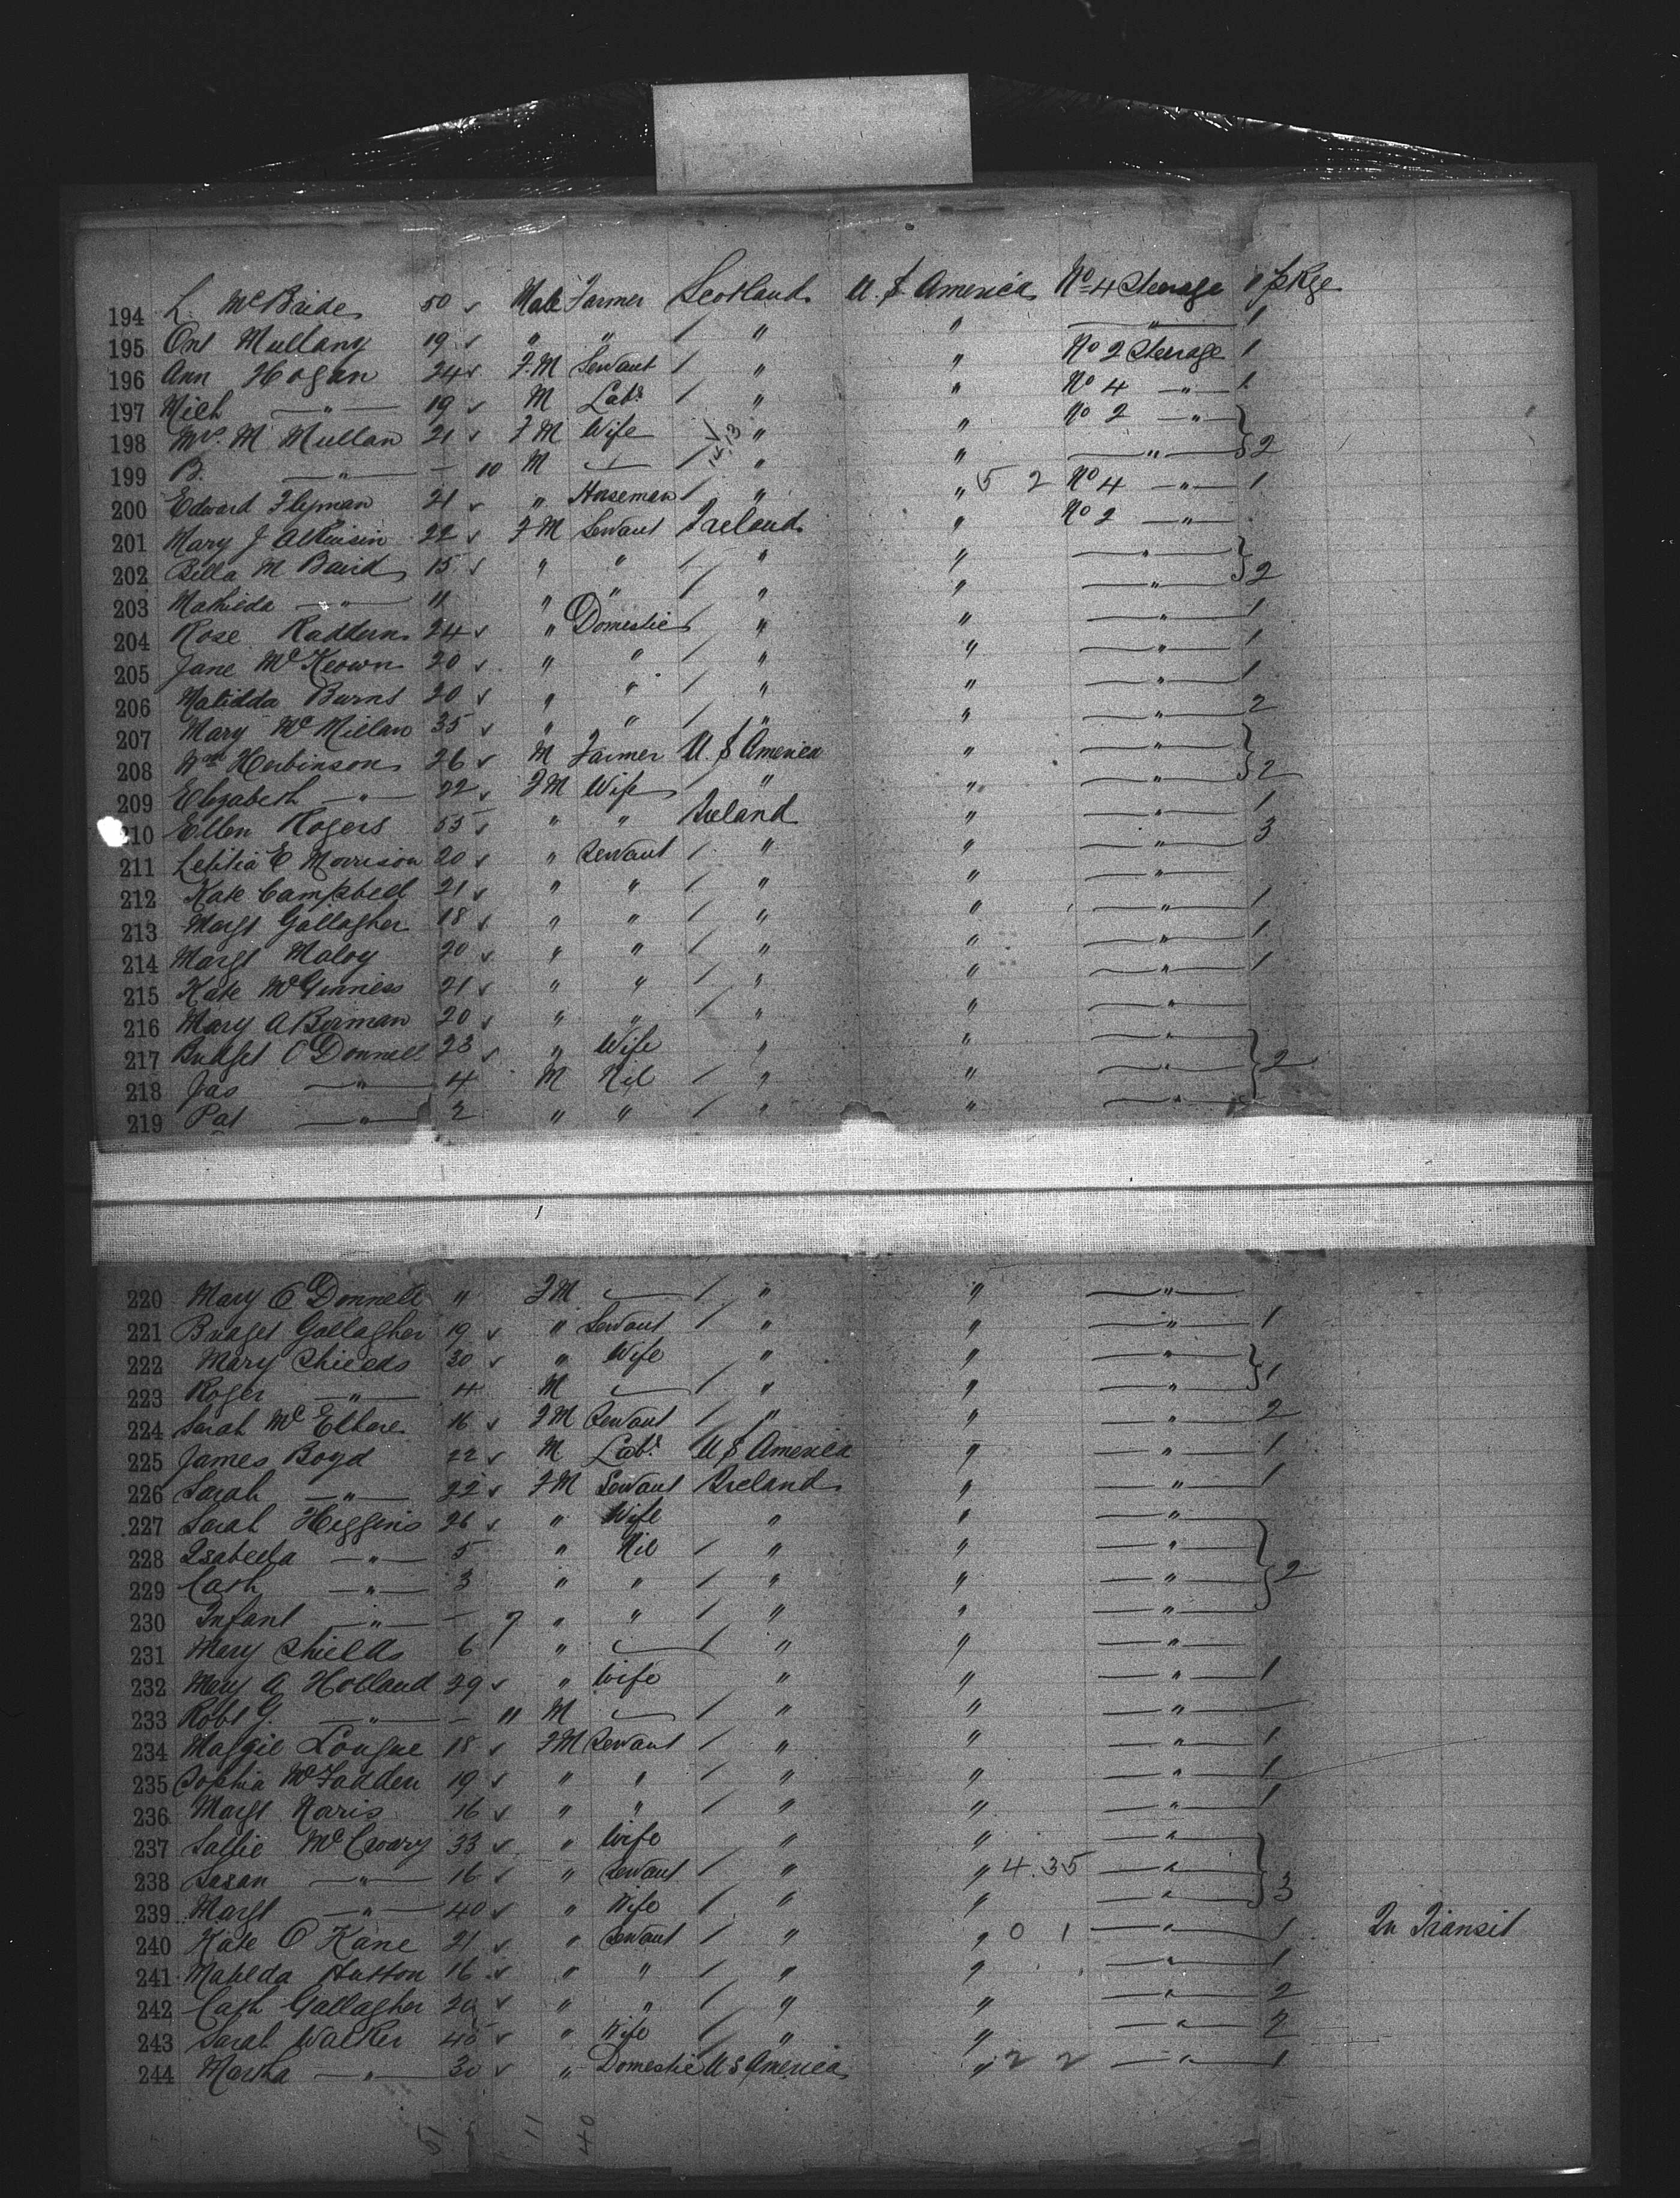 194 L. McBride 50 Male Farmer Scotland U. S. America No 4 Steerage 1 pkge
195 Ont Mullany 19 " " / " " " 1
196 Ann Hogan 24 F.M Servant / " " No 2 Steerage 1
197 Mich " 19 M Labr / " " No 4 " 1
198 Mrs. M Mullan 21 F M Wife " " No 2 "
199 B. " - 10 M / " " " 2
200 Edward Flyman 21 " Horseman / " " 5 2 No 4 " 1
201 Mary J Atkinsin 22 F M Servant Ireland " No 2 "
202 Bella M Baird 15 " " / " " "
203 Mathilda " 11 " " / " " " 2
204 Rose Raddern 24 " Domestic / " " " 1
205 Jane McKeown 20 " " / " " " 1
206 Matildda Burns 20 " " / " " " 1
207 Mary McMillan 35 " " / " " " 2
208 Wm Herbinson 26 M Farmer U. S America " "
209 Elizabeth " 22 F M Wife " " " 2
210 Ellen Rogers 55 " " Ireland " " 1
211 Letitia E Morrison 20 " Servant / " " " 3
212 Kate Campbell 21 " " / " " "
213 Margt Gallagher 18 " " / " " " 1
214 Margt Maloy 20 " " / " " " 1
215 Kate McGinness 21 " " / " " " 1
216 Mary A Berman 20 " " / " " "
217 Bridget O'Donnell 23 " Wife " " "
218 Jas " 4 M Nil / " " " 2
219 Pat " 2 " " / " " "
220 Mary O'Donnell " F M / " " "
221 Bridget Gallagher 19 " Servant / " " " 1
222 Mary Shields 30 " Wife " " "
223 Roger " 4 M / " " " 1
224 Sarah McElhare 16 F M Servant / " " " 2
225 James Boyd 22 M Labr U S America " " 1
226 Sarah " 22 F M Servant Ireland " " 1
227 Sarah Higgins 26 " Wife " " "
228 Isabella " 5 " Nil / " " "
229 Cath " 3 " " / " " " 2
230 Infant " - 7 " " / " " "
231 Mary Shields 6 " / " " "
232 Mary A Holland 29 " Wife " " " 1
233 Robt G. " - 11 M / " " "
234 Maggie Longue 18 F M Servant / " " " 1
235 Sophia McFadden 19 " " / " " " 1
236 Margt Haris 16 " " / " " " 1
237 Sallie McCreary 33 " Wife " " "
238 Susan " 16 " Servant / " " 4.35 "
239 Margt " 40 " Wife / " " " 3
240 Kate O'Kane 21 " Servant / " " 0 1 " 1 In Transit
241 Matilda Hutton 16 " " / " " " 1
242 Cath Gallagher 20 " " / " " " 2
243 Sarah Walker 45 " Wife / " " " 2
244 Martha " 30 " Domestic U S America " 2 2 " 1
51 11 40